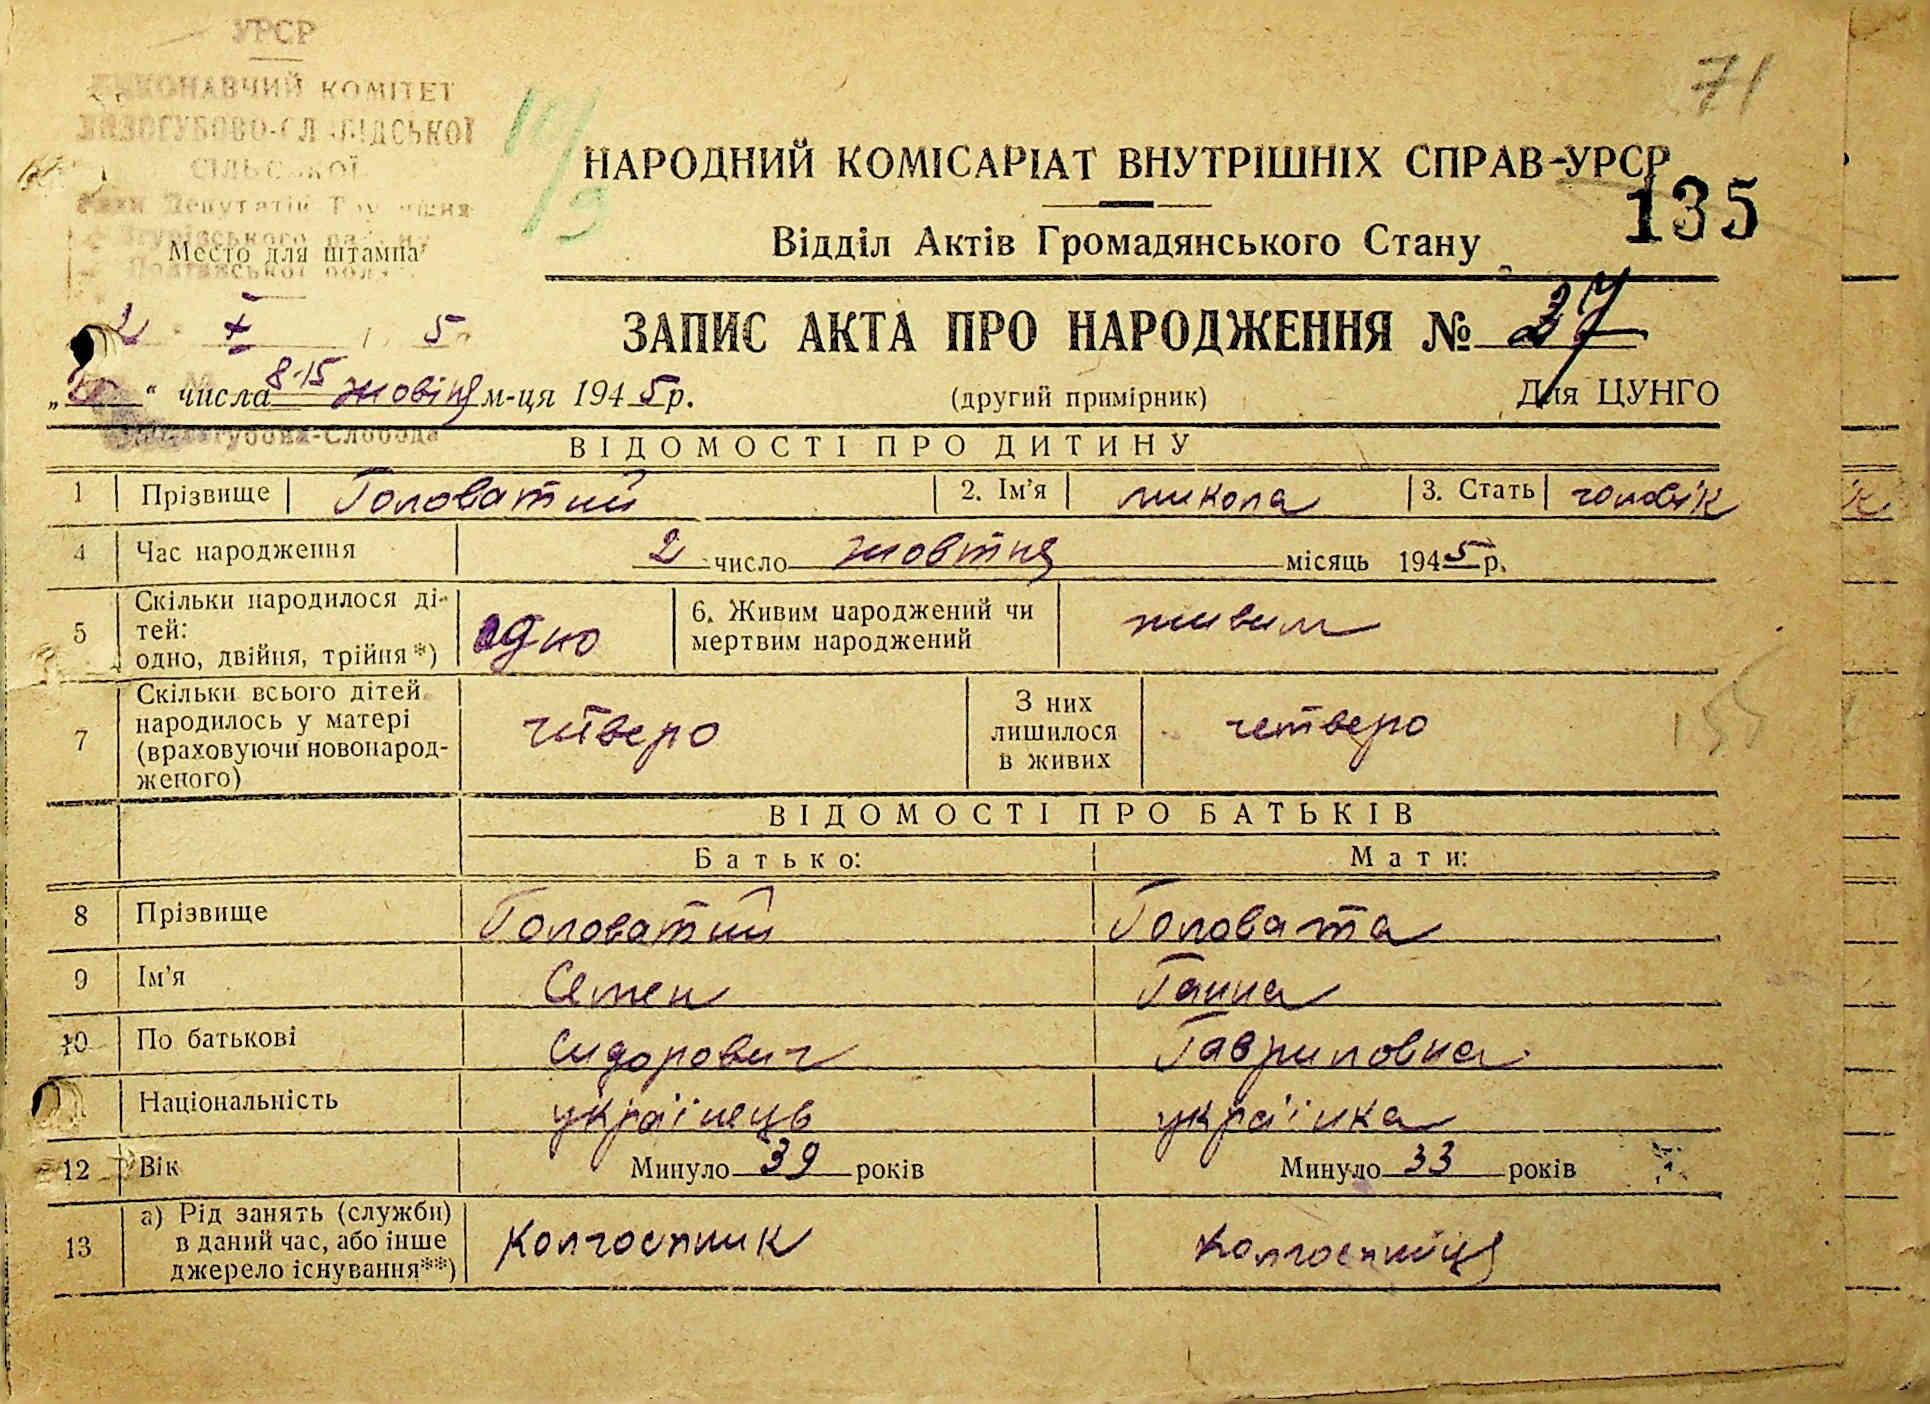 71
УРСР
ВИКОНАВЧИЙ КОМІТЕТ
ЛИЗОГУБОВО-СЛОБІДСЬКОЇ
СІЛЬСЬКОЇ
Ради Депутатів Трудящих
Згурівського району
Полтавської обл.
Место для штампа
10/9
НАРОДНИЙ КОМІСАРІАТ ВНУТРІШНІХ СПРАВ-УРСР
135
Відділ Актів Громадянського Стану
2 X 5
ЗАПИС АКТА ПРО НАРОДЖЕННЯ № 37
„ “ числа 8-15 жовтня м-ця 1945 р.
(другий примірник) Для ЦУНГО
Лизогубова-Слобода
ВІДОМОСТІ ПРО ДИТИНУ
1 Прізвище Головатий 2. Ім'я микола 3. Стать чоловік
4 Час народження 2 число жовтня місяць 1945 р.
5 Скільки народилося ді-
тей:
одно, двійня, трійня*) одно 6. Живим народжений чи
мертвим народжений живим
7 Скільки всього дітей
народилось у матері
(враховуючи новонарод-
женого) четверо З них
лишилося
в живих четверо
155
ВІДОМОСТІ ПРО БАТЬКІВ
Батько: Мати:
8 Прізвище Головатий Головата
9 Ім'я Семен Ганна
10 По батькові Сидорович Гавриловна
Національність українець українка
12 Вік Минуло 39 років Минуло 33 років
13 а) Рід занять (служби)
в даний час, або інше
джерело існування**) Колгоспник колгоспниця